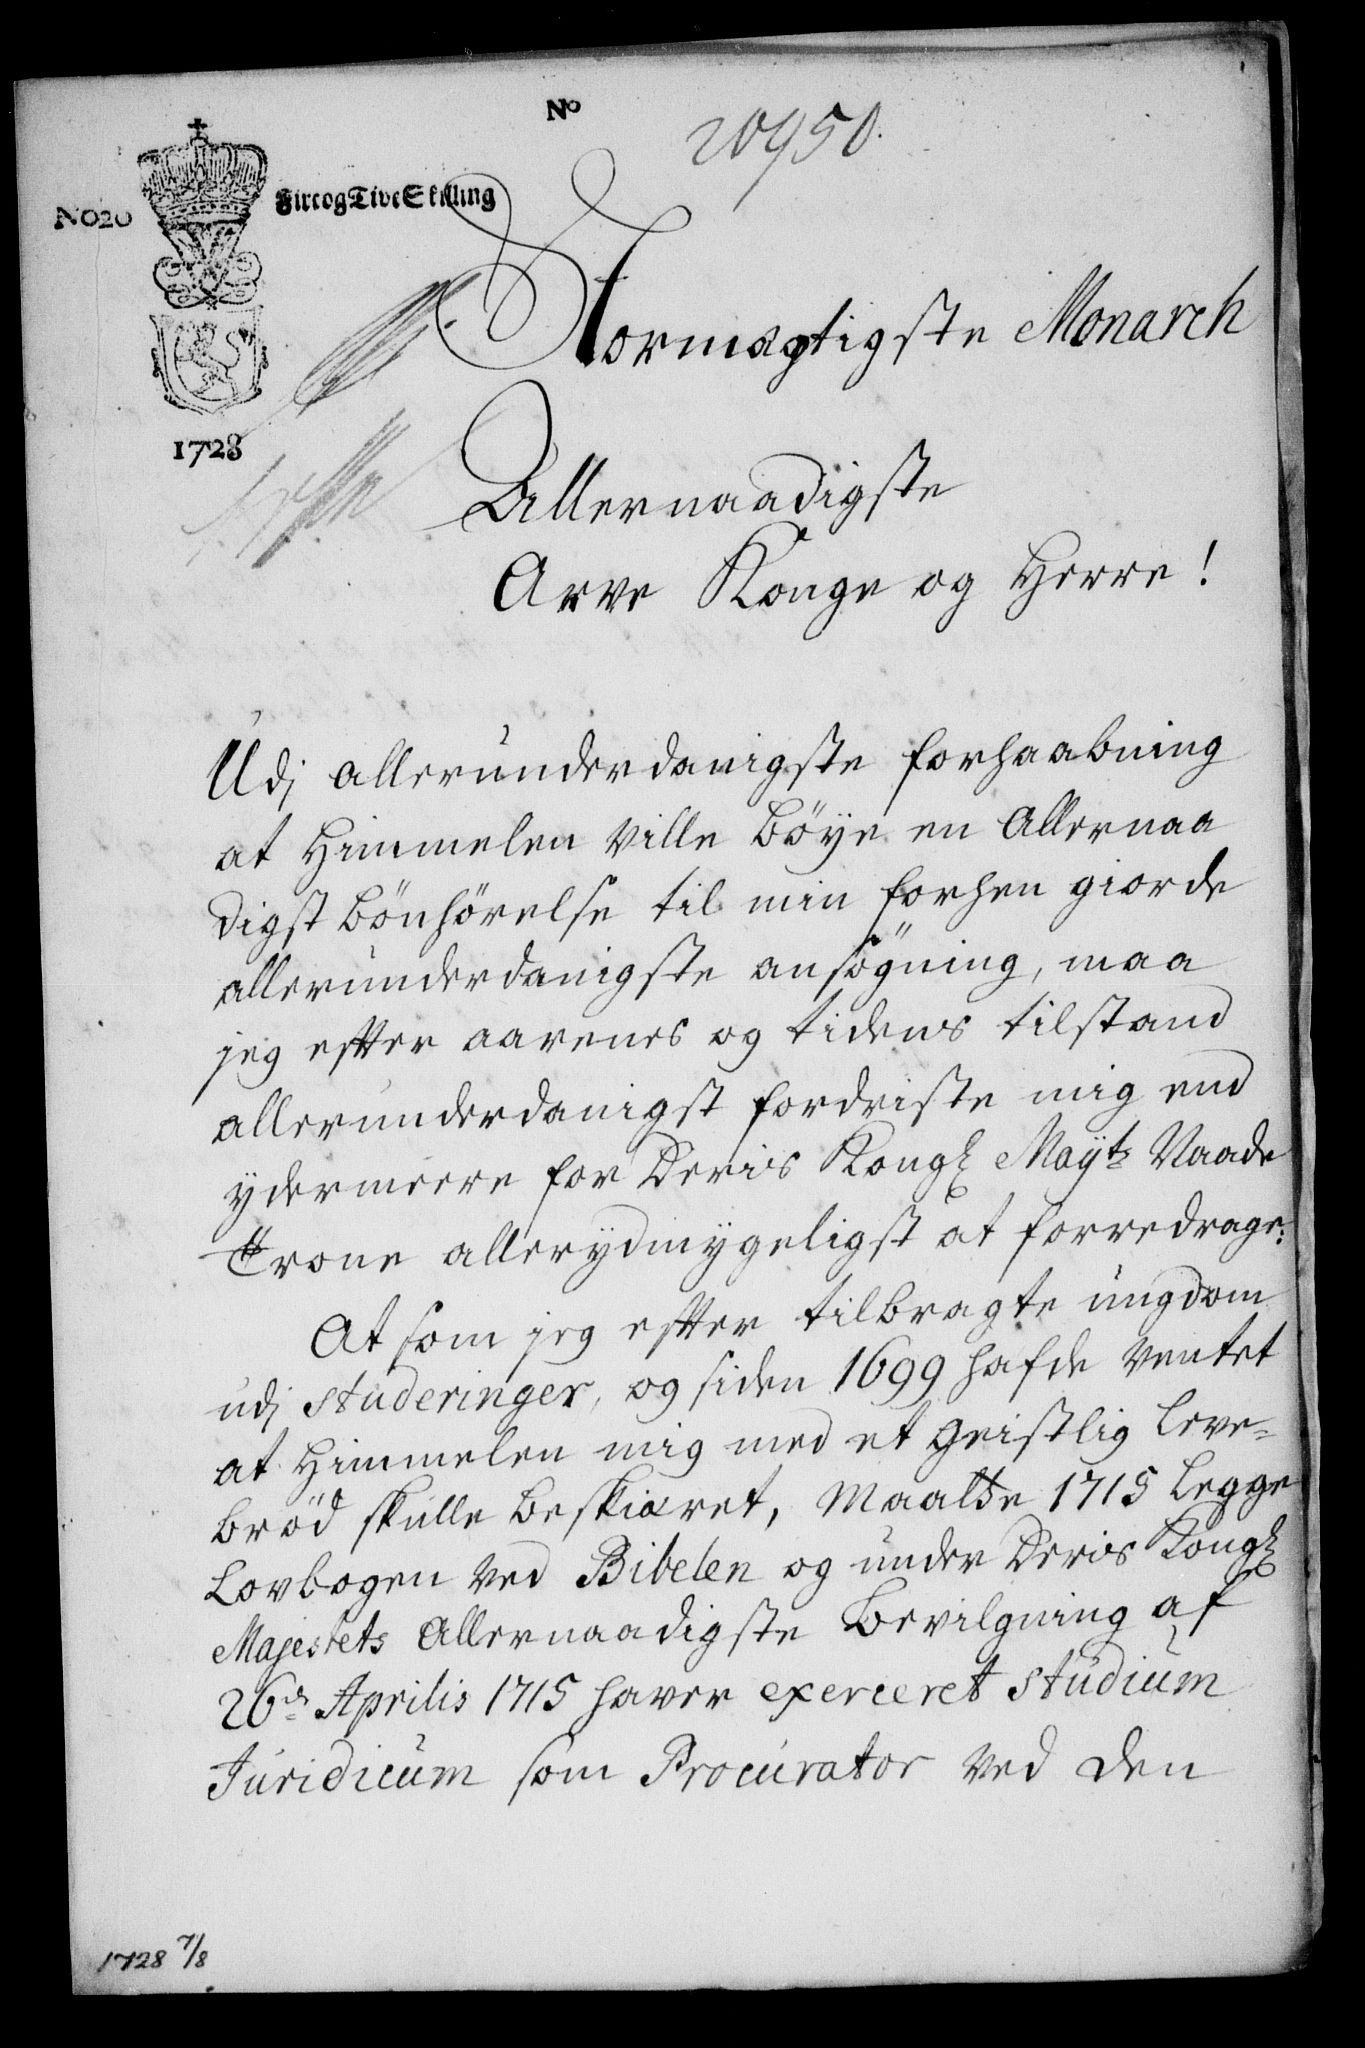 No
20950.
No20 Fire og Tive Skilling
1728
Stormægtigste Monarch
Allernaadigste
Arve Konge og Herre!
Udj allerunderdanigste forhaabning
at Himmelen ville böye en Allernaa
digst bönhörelse til min forhen giorde
allerunderdanigste ansögning, maa
jeg efter aarenes og tidens tilstand
allerunderdanigst fordriste mig end
ydermeere for Deris Kongl Mayts Naade
Trone allerydmygeligst at forredrage:
At som jeg efter tilbragte ungdom
udj studeringer, og siden 1699 hafde ventet
at Himmelen mig med et geistlig leve-
bröd skulle beskiæret, maatte 1715 legge
Lovbogen ved Bibelen og under Deris Kongl
Majestets Allernaadigste Bevilgning af
26de Aprilis 1715 haver exerceret studium
Juridicum som Procurator ved den
1728 7/8